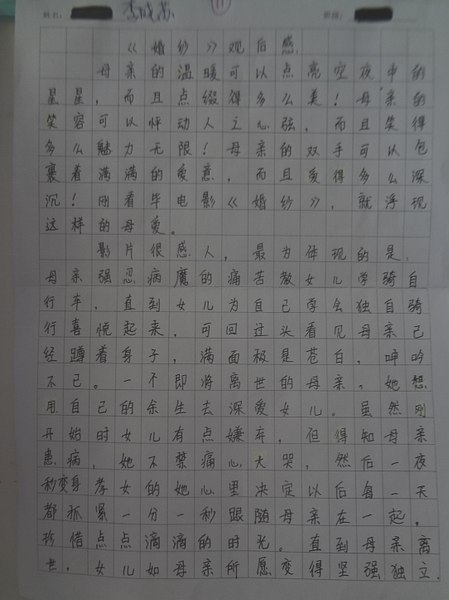 姓名： 李成蕊 11 班级：
《婚纱》观后感
母亲的温暖可以点亮空夜中的
星星，而且点缀得多么美！母亲的
笑容可以怦动人之心弦，而且笑得
多么魅力无限！母亲的双手可以包
裹着满满的爱意，而且爱得多么深
沉！刚看毕电影《婚纱》，就浮现
这样的母爱。
影片很感人，最为体现的是，
母亲强忍病魔的痛苦教女儿学骑自
行车，直到女儿为自己学会独自骑
行喜悦起来，可回过头看见母亲已
经蹲着身子，满面极是苍白，呻吟
不已。一个即将离世的母亲，她想
用自己的余生去深爱女儿。虽然刚
开始时女儿有点嫌弃，但得知母亲
患病，她不禁痛心大哭，然后一夜
秒变身孝女的她心里决定以后每一天
都抓紧一分一秒跟随母亲在一起，
珍惜点点滴滴的时光。直到母亲离
世，女儿如母亲所愿变得坚强独立，